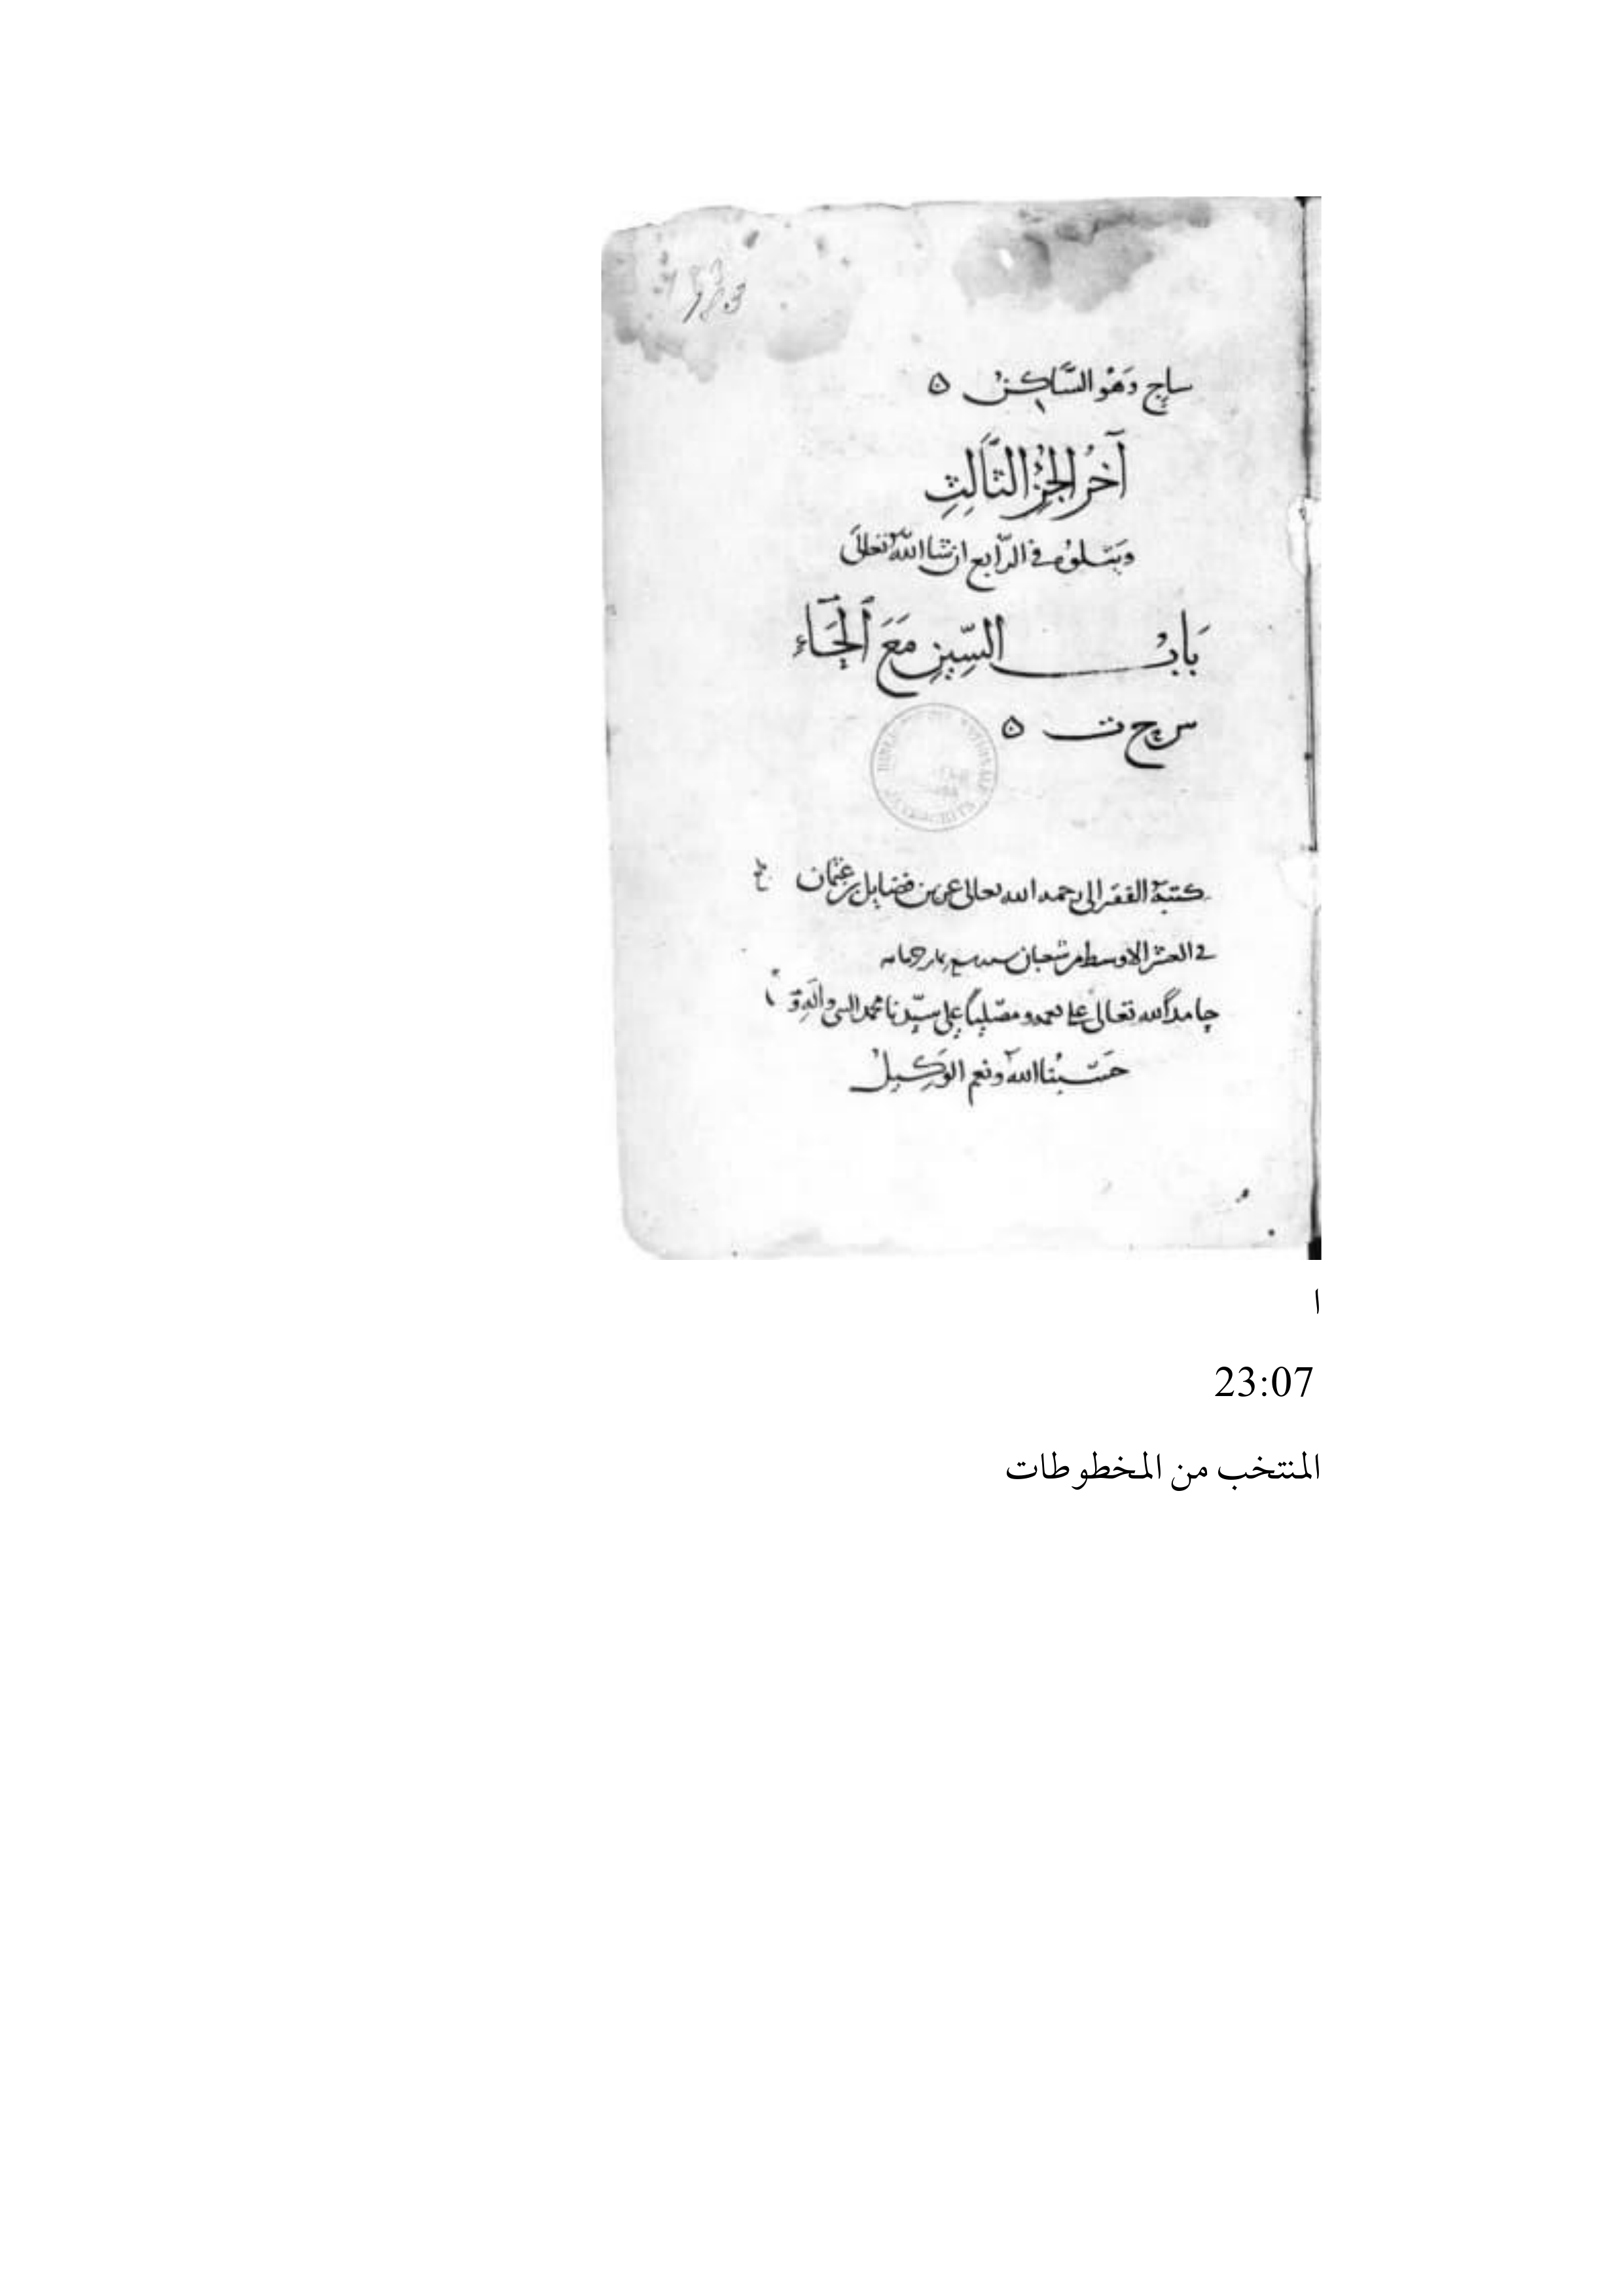 ساج وَهْو السَّاكنُ ه
آخرُ الجزْء الثَّالِثِ
وَيتلوه في الرّابع ان شا اللهُ تعالَى
بَابُ السِّينِ مَعَ الْحَاءِ
س ح ت ه
كتبهُ الفقير الى رحمه الله تعالى بن فضايل بن عثمان
في العشر الاوسط من شعبان سنه
حامدًا لله تعالى على نعمه ومصَلّيًا على سيّدنا محمد النبى وآلهِ و
حَسْبُنا اللهُ ونعم الوَكِيلُ
ا
23:07
المنتخب من المخطوطات